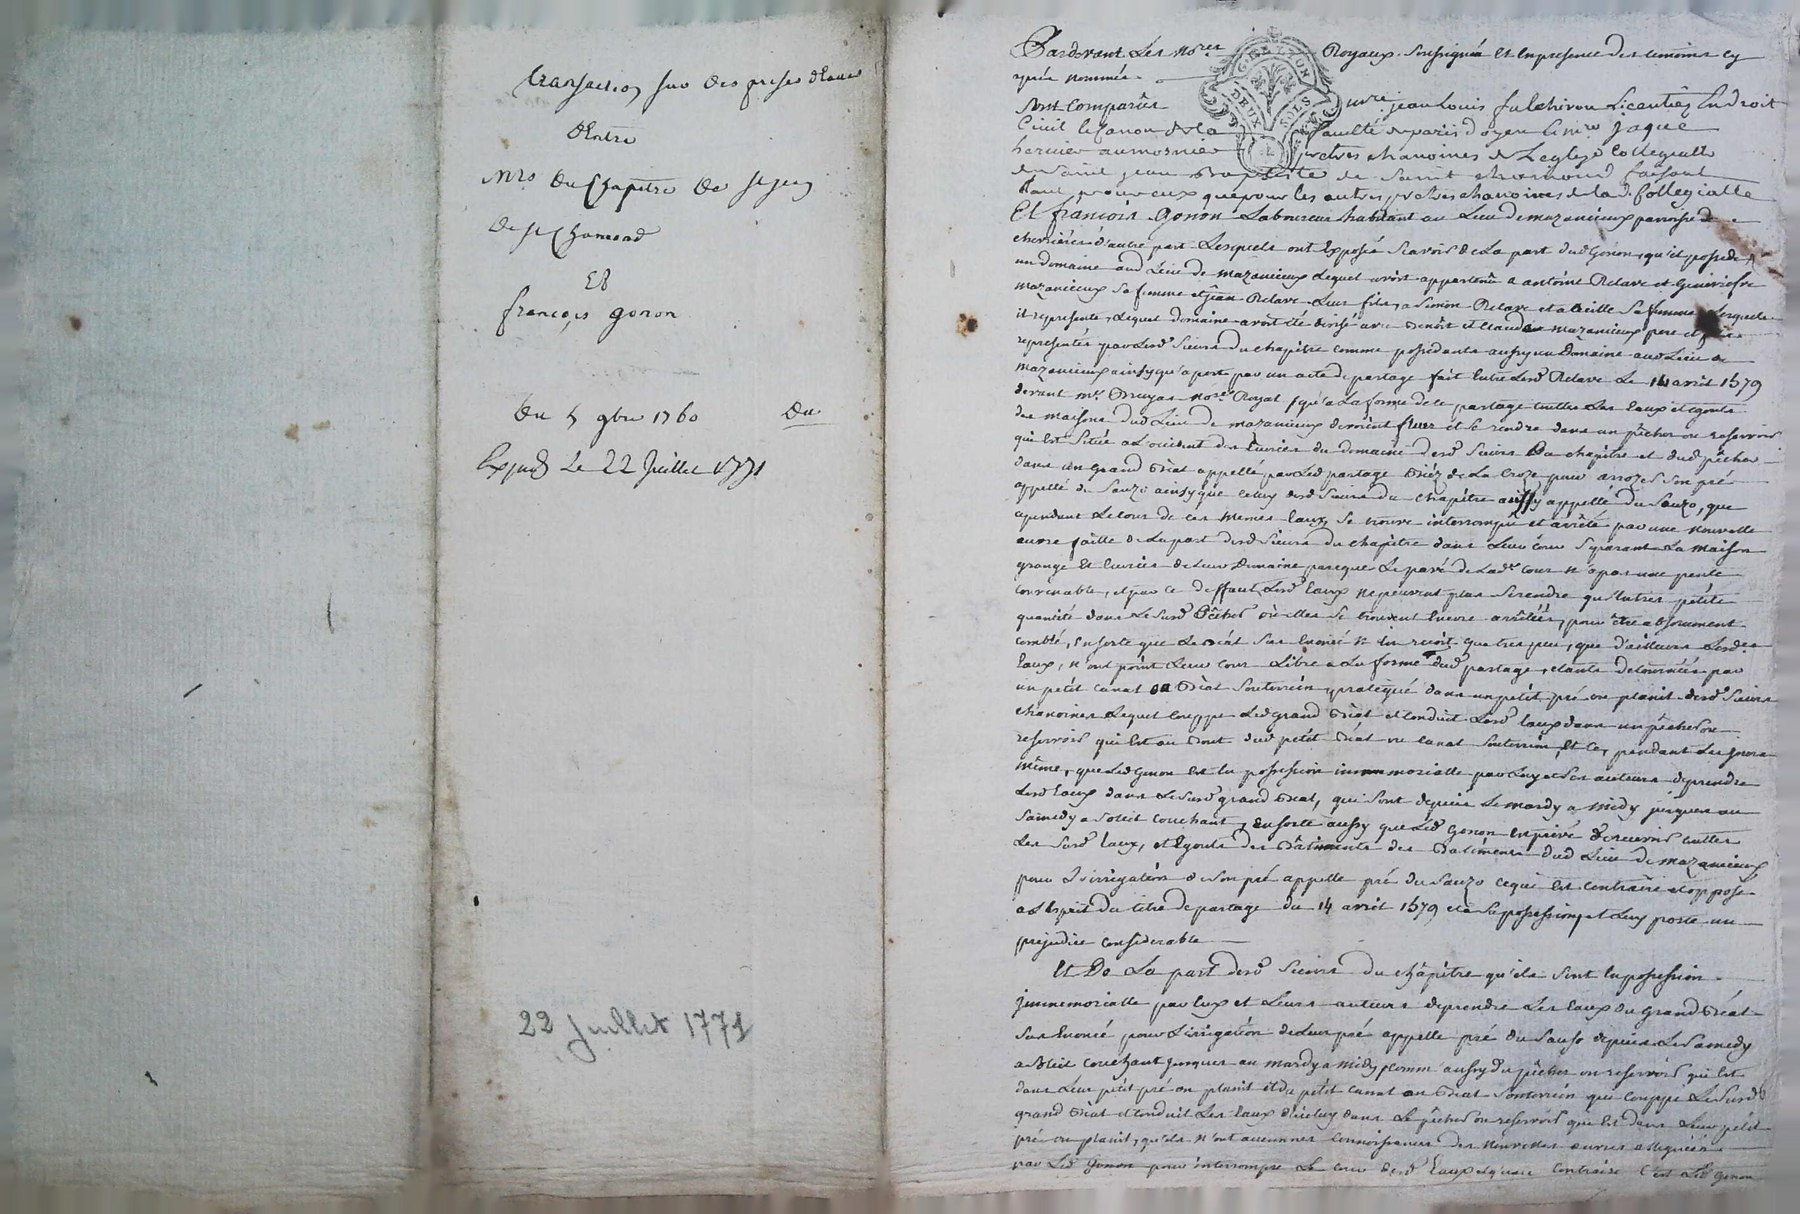 transaction sur des prises d'eaux
Entre
Mrs du Chapitre de st jean
de st Chamond
Et
françois gonon
du 5 9bre 1760 du
Exped le 22 Juillet 1771
22 juillet 1771
Pardevant Les Nores Royaux soussignés Et En presence des temoins cy
après nommés
G. DE LYON
DEUX SOLS
sont Comparûs mre jean Louis fulchiron Licentiés En droit
Civil & Canon de la faculté de paris doyen & mre jaque
hervier aumosnier pretres chanoines de L'eglise Collegialle
de saint jean Baptiste de saint chamond faisant
tant pour eux que pour les autres pretres chanoines de la de Collegialle
Et francois Gonon Laboureur habitant au Lieu de mazanieux parroisse de
chevrières d'autre part Lesquels ont Exposés scavoir de La part dud Gonon, qu'il possede
un domaine aud Lieu de mazanieux Lequel avoit appartenû a antoine Relave et Genevieve
mazanieux sa femme et jean Relave Leur fils, a simon Relave et a sa femme Lesquels
il represente, Lequel domaine avoit été divisé avec Benoit et Claude mazanieux pere et
representés par Lesd sieurs du chapitre comme possedants aussy un Domaine aud Lieu de
mazanieux ainsy qu'apert par un acte de partage fait Entre Lesd Relave Le 14 avril 1579
devant me Bruyas Nore Royal qu'a La forme de ce partage toutes Les Eaux et egouts
des maisons dud Lieu de mazanieux devoient fluer et se rendre dans un pêcher ou reservoir
qui est situé a L'occident des Ecuries du domaine desd sieurs Du chapitre et dud pêcher
dans un grand Béat appellé par Led partage Biéz de La Croze pour arroser son pré
appellé du sauzo ainsy que celuy desd sieurs du chapitre aussy appellé du sauzo, que
cependant Le cour de ces mêmes Eaux se trouve interrompû et arrêté par une nouvelle
œuvre faitte de La part desd sieurs du chapitre dans Leur Cour separant La maison
grange Et Ecuries de Leur Domaine parceque Le pavé de Lade cour n'a pas une pente
convenable, et par ce deffaut Lesd Eaux ne peuvent plus se rendre qu'en tres petite
quantité dans Le susd Pêcher où elles se trouvent Encore arrêtées, pour être absolument
comblé, En sorte que Le Béat sus Enoncé n'en reçoit que tres peu, que d'ailleurs Lesdes
Eaux, n'ont point Leur cour Libre a La forme dud partage, etants detournées par
un petit canal ou Béat souterrein pratiqué dans un petit pré ou planit desd sieurs
chanoines Lequel couppe Led grand Béat et Conduit Lesd Eaux dans un pêcher ou
reservoir qui Est au Bout dud petit Béat ou canal souterrein, Et Ce, pendant Les jours
même, que Led Gonon Est En possession immemorialle par Luy et ses auteurs de prendre
Lesd Eaux dans Le susd grand Béat, qui sont depuis Le mardy a midy jusques au
samedy a soleil couchant, En sorte aussy que Led Gonon Est privé de recevoir toutes
Les susd Eaux, et Egouts des Batiments des Batiments dud Lieu de mazanieux
pour L'irrigation de son pré appellé pré du sauzo ce qui Est contraire et opposé
a L'esprit du titre de partage du 14 avril 1579 et a sa possession, et Luy porte un
prejudice considerable
Et De La part desd sieurs du chapitre qu'ils sont En possession
jmmemorialle par Eux et Leurs auteurs de prendre Les Eaux du Grand Béat
sus Enoncé, pour L'irrigation de Leur pré appellé pré du sauzo depuis Le samedy
a soleil couchant jusques au mardy a midy, comm' aussy du pêcher ou reservoir qui Est
dans Leur petit pré ou planit Et du petit canal ou Béat souterrein qui couppe Le susd
grand Béat et conduit Les Eaux d'iceluy dans Le pêcher ou reservoir qui Est dans Leur petit
pré ou planit, qu'ils n'ont aucunnes connoissances des nouvelles œuvres alleguées
par Led Gonon pour interrompre Le cour desd Eaux et qu'au Contraire C'est Led Gonon